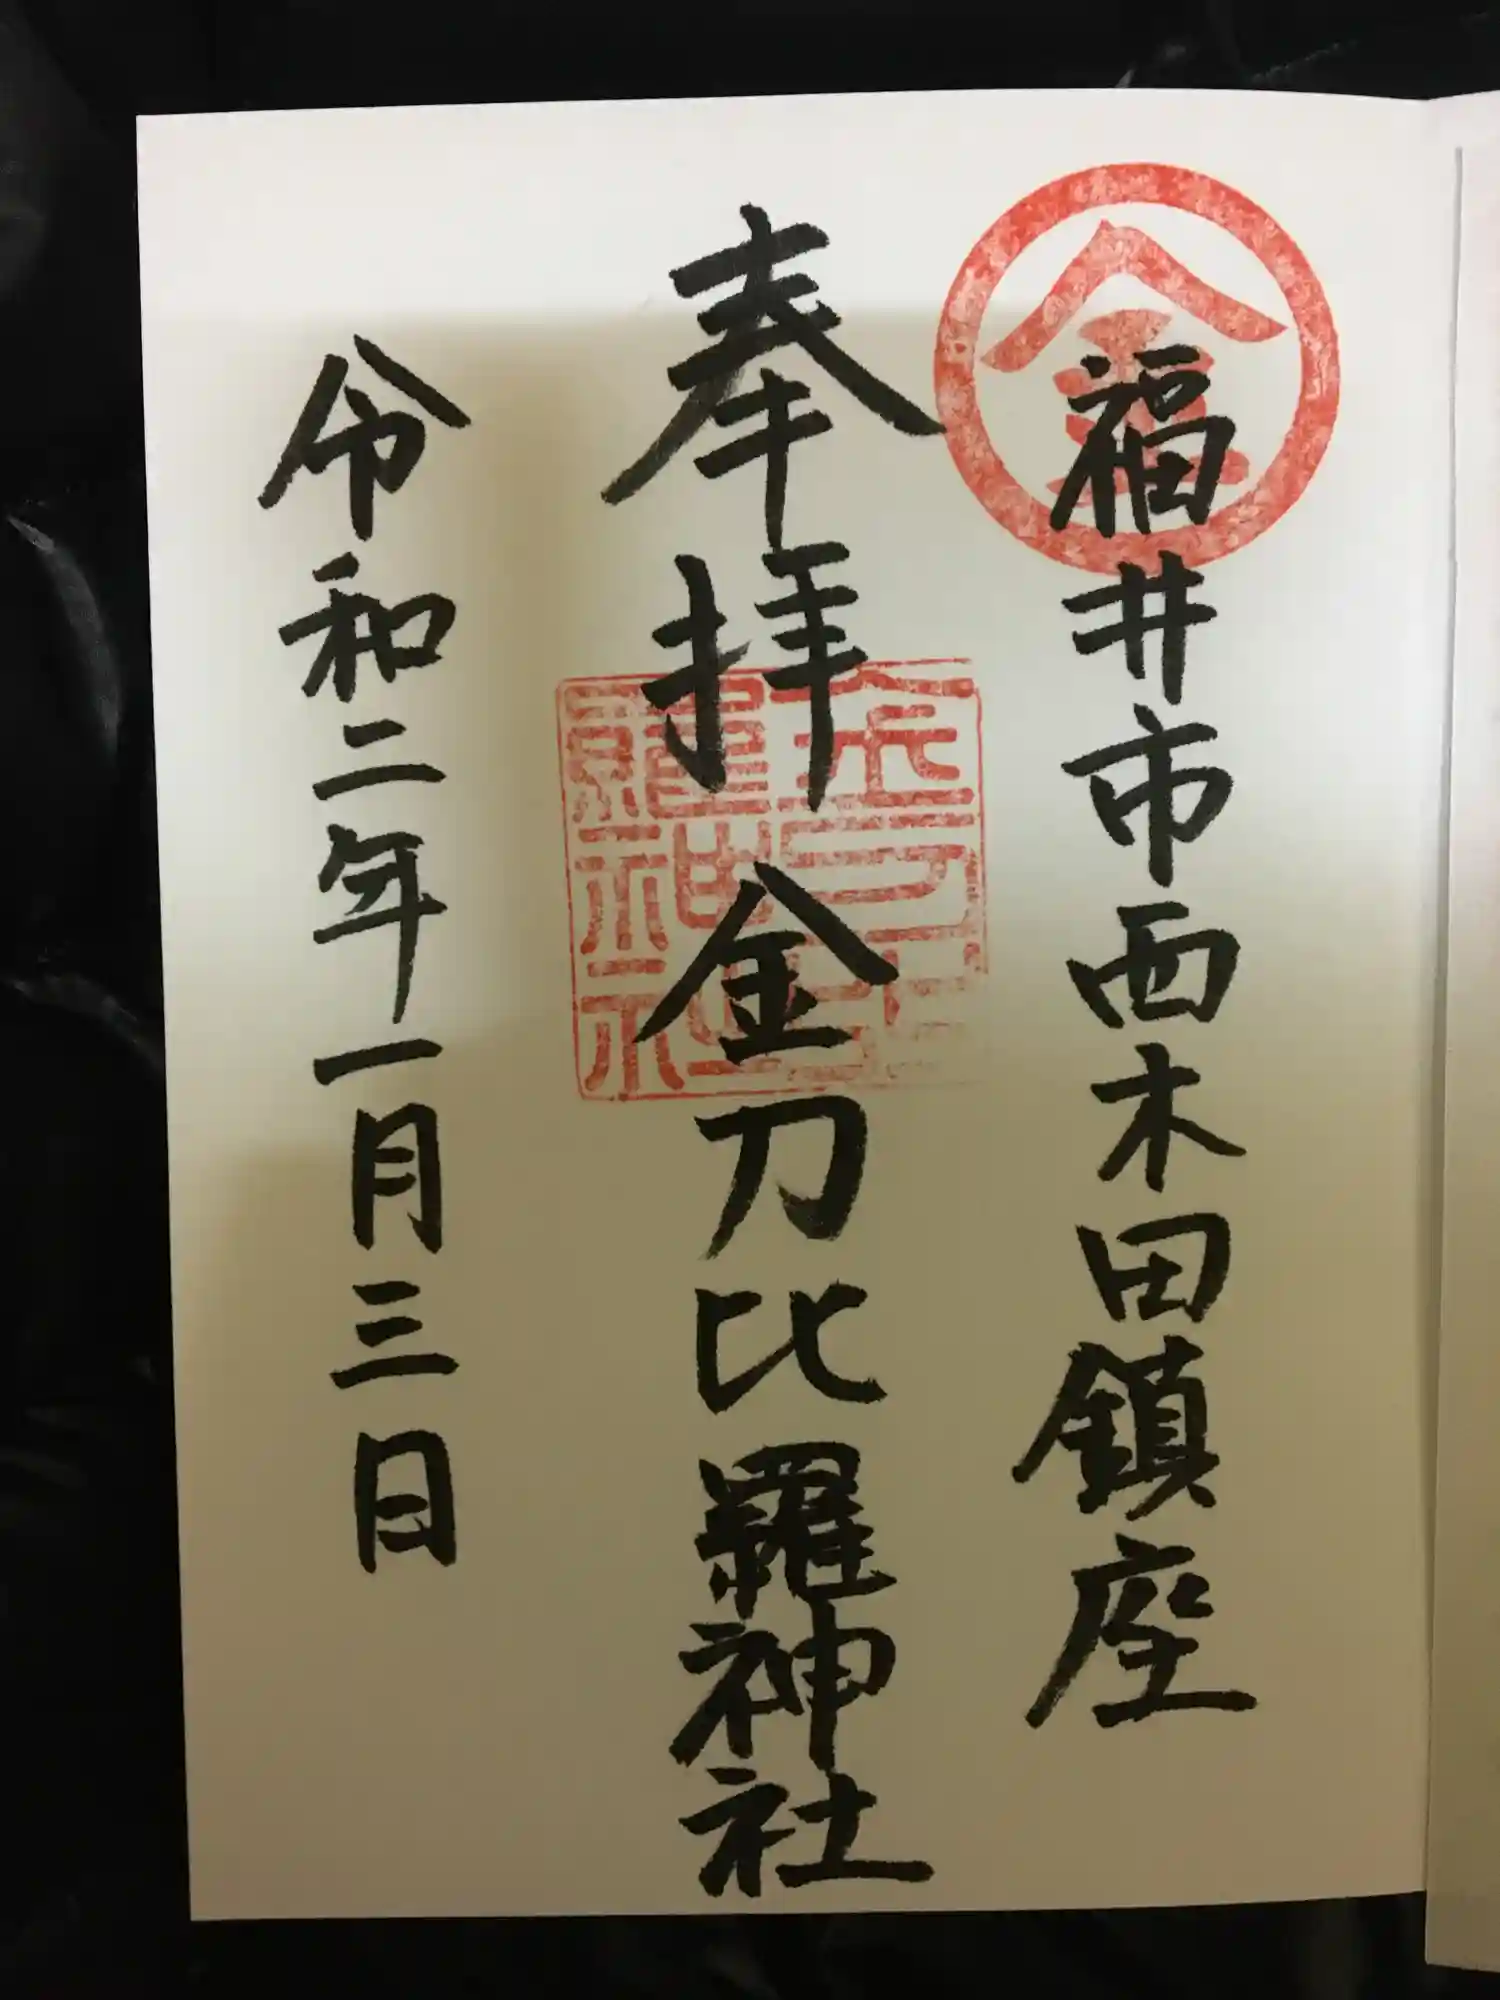 福井市西木田鎮座
奉拝 金刀比羅神社
令和二年一月三日
金
金刀比
羅神社